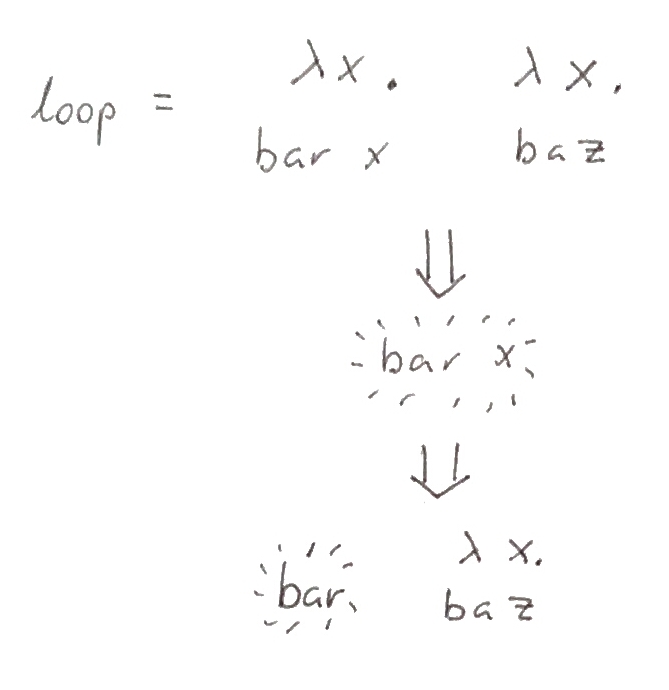 loop = λx. λx.
bar x baz
⇓
bar x
⇓
λx.
bar baz